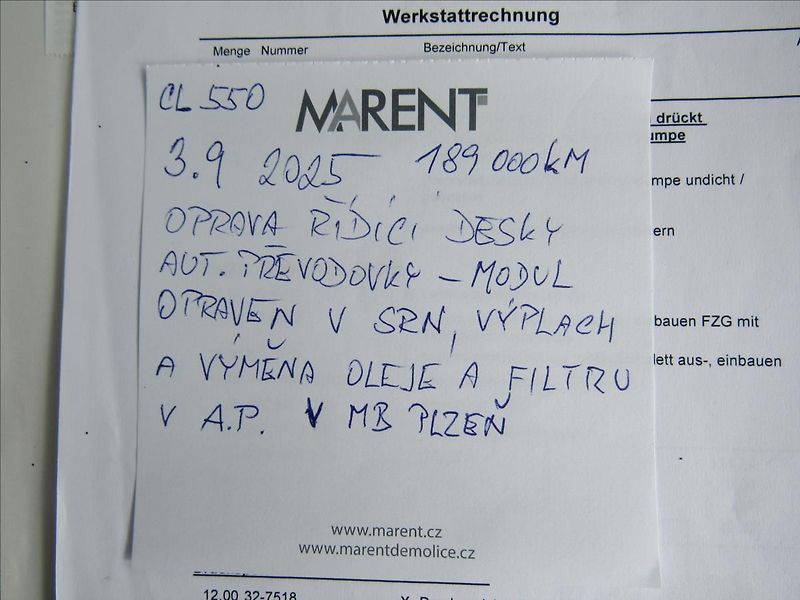 Werkstattrechnung
Menge Nummer Bezeichnung/Text
CL 550 MARENT
drückt
3.9 2025 189 000KM
mpe undicht /
OPRAVA ŘÍDÍCÍ DESKY
ern
AUT. PŘEVODOVKY – MODUL
OPRAVEN V SRN, VÝPLACH
bauen FZG mit
A VÝMĚNA OLEJE A FILTRU
lett aus-, einbauen
V A.P. V MB PLZEŇ
www.marent.cz
www.marentdemolice.cz
12.00 32-7518